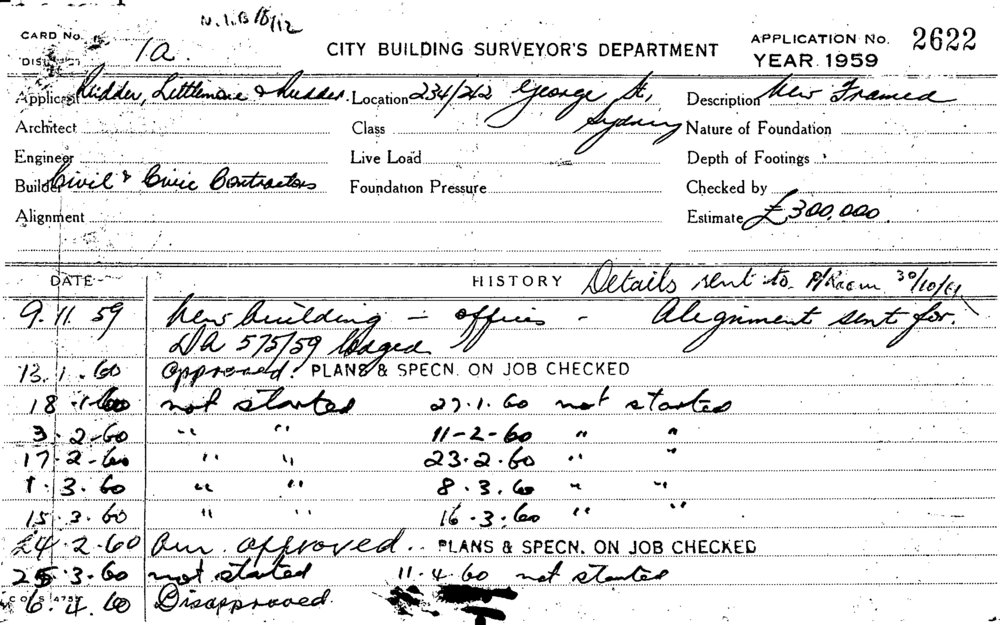 N.I.B 18/12
CARD No.
DISTRICT 1a.
CITY BUILDING SURVEYOR'S DEPARTMENT
APPLICATION No. 2622
YEAR 1959
Applicant Rudder, Littlemore & Rudder. Location 234/242 George St, Sydney Description New Framed
Architect Class Nature of Foundation
Engineer Live Load Depth of Footings
Builder Civil & Civic Contractors Foundation Pressure Checked by
Alignment Estimate £300,000.
DATE HISTORY Details sent to P/Room 30/10/61
9.11.59 New building – offices – Alignment sent for.
DA 575/59 lodged
13.1.60 approved. PLANS & SPECN. ON JOB CHECKED
18.1.60 not started 27.1.60 not started
3.2.60 " " 11-2-60 " "
17-2-60 " " 23.2.60 " "
1.3.60 " " 8.3.60 " "
15.3.60 " " 16.3.60 " "
24.2.60 approved.. PLANS & SPECN. ON JOB CHECKED
25.3.60 not started 11.4.60 not started
6.4.60 Disapproved.